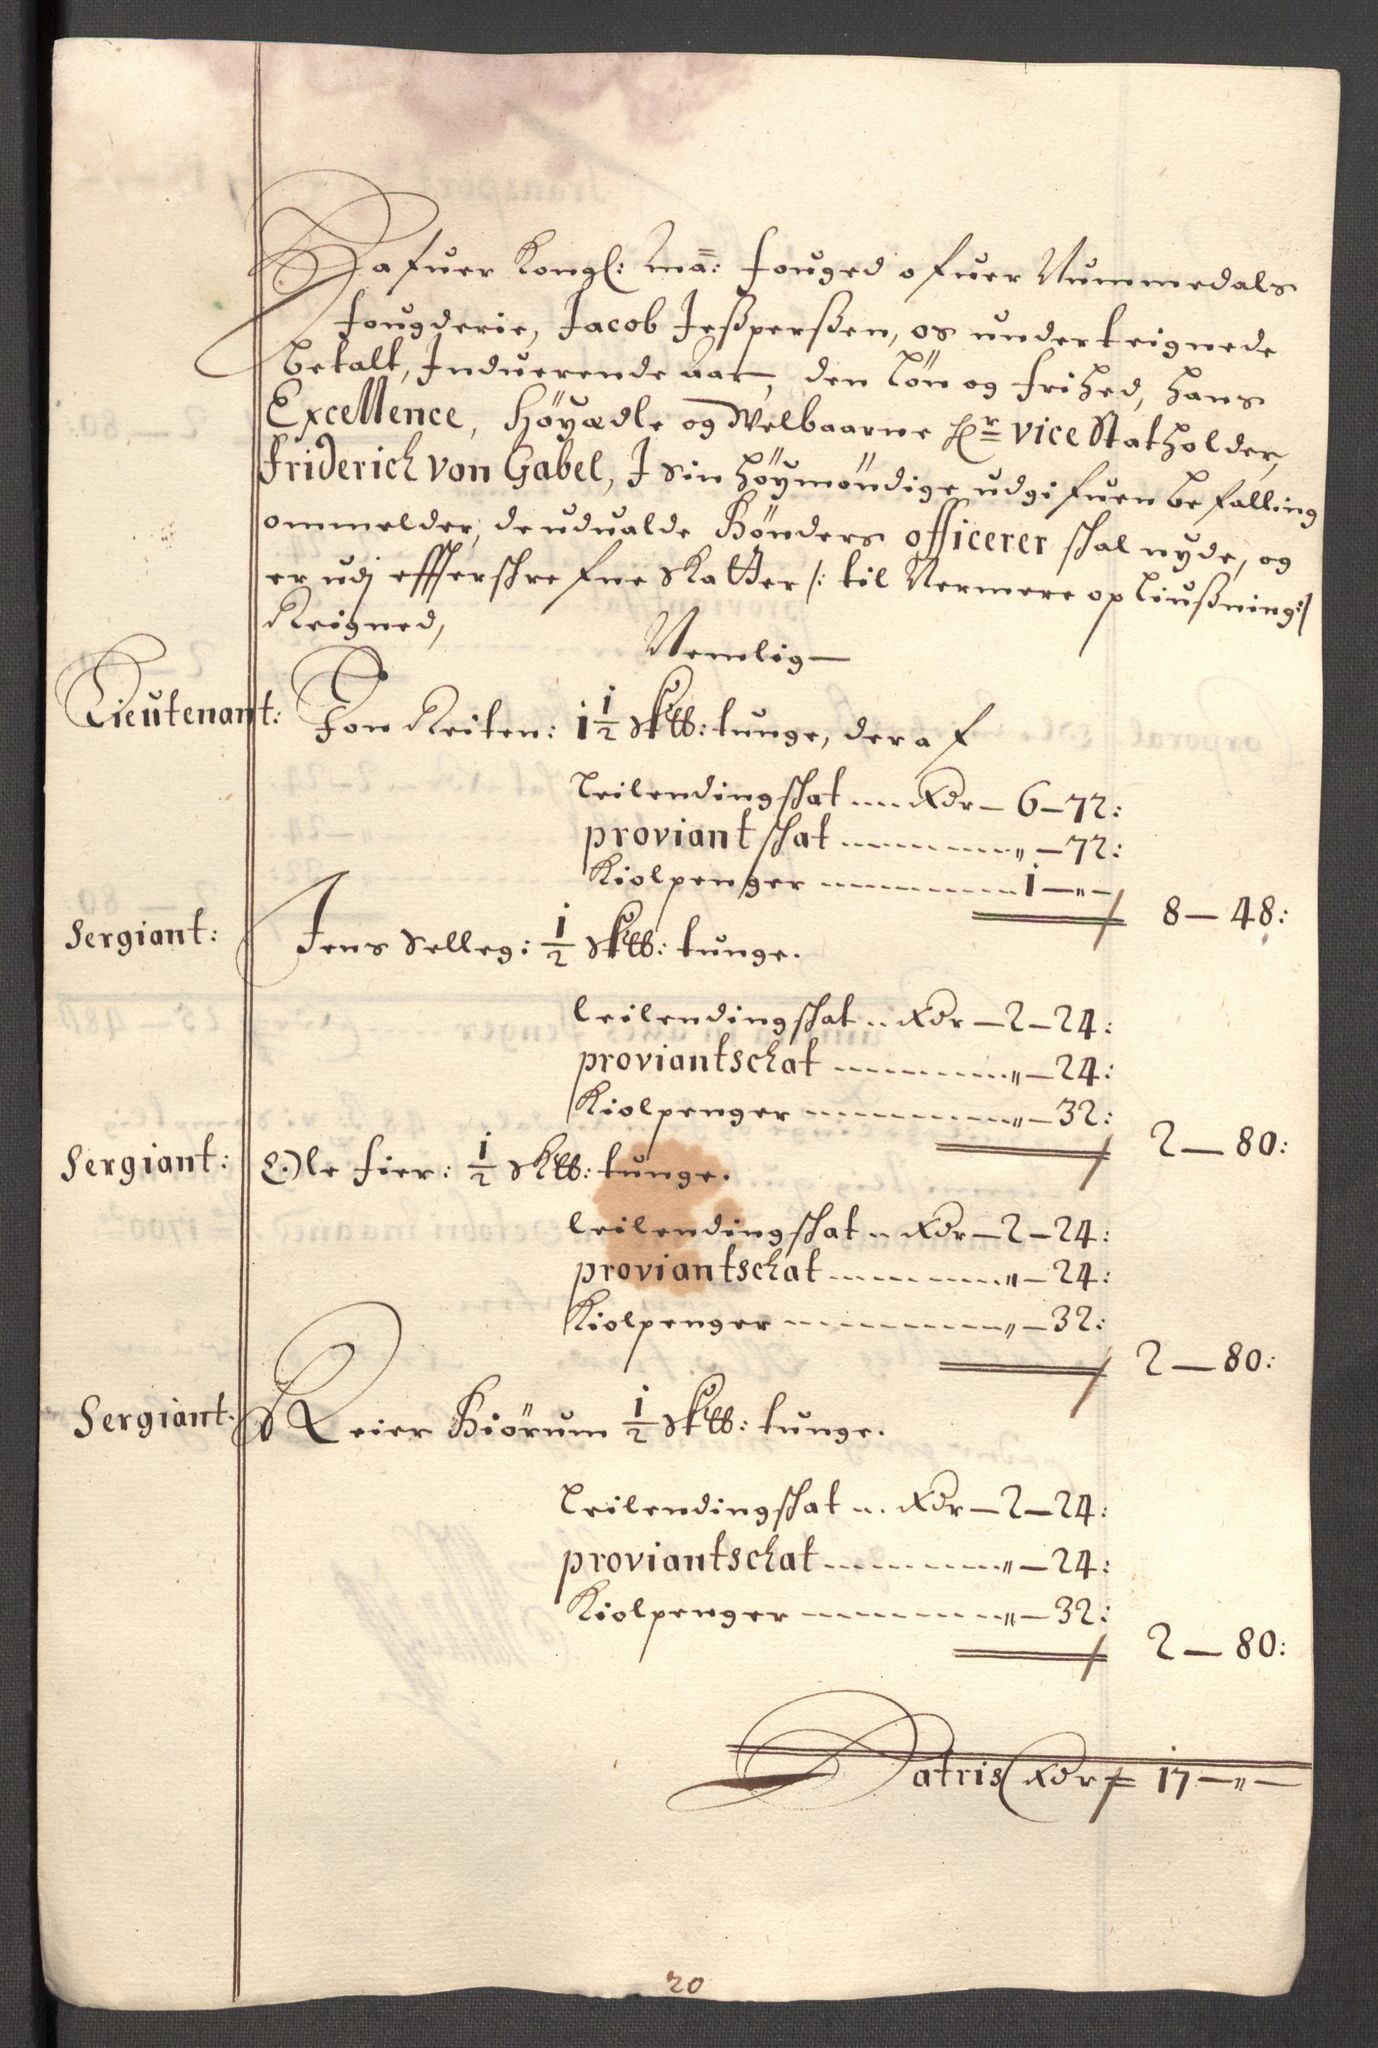 Hafuer Kongl: Maÿ: fouged ofuer Nummedals
fougderie, Jacob Jesperßen, os underteignede
betalt, Induerende Aar, den Lön og frihed, hans
Excellence, Höyædle og Welbaarne Hr vice Statholder,
Friderich von Gabel, J Sin höÿmöndige udgifuen befalling
ommelder, de udualde Bönders officerer skal nyde, og
er udj effterskrefne Skatter /: til Nermere opliusning:/
Reigned,
Nemlig
Lieutenant: Jon Reiten: 1 1/2 Sk℔: tunge, deraf
Leilendingskat .... Rdr - 6 - 72:
proviantskat .......... " - 72:
Kiolpenger .......... 1 - " -
8 - 48:
Sergiant: Jens Selleg: 1/2 Sk℔: tunge.
leilendingskat .. Rdr - 2 - 24:
proviantschat .......... " - 24:
Kiolpenger .......... " - 32:
2 - 80:
Sergiant: Ole fier: 1/2 Sk℔: tunge.
leilendingskat .. Rdr - 2 - 24:
proviantschat .......... " - 24:
Kiolpenger .......... " - 32:
2 - 80:
Sergiant: Reier Biörum 1/2 Sk℔: tunge.
Leilendingskat .. Rdr - 2 - 24:
proviantschat .......... " - 24:
Kiolpenger .......... " - 32:
2 - 80:
Latris Rdr 17 - " -
20